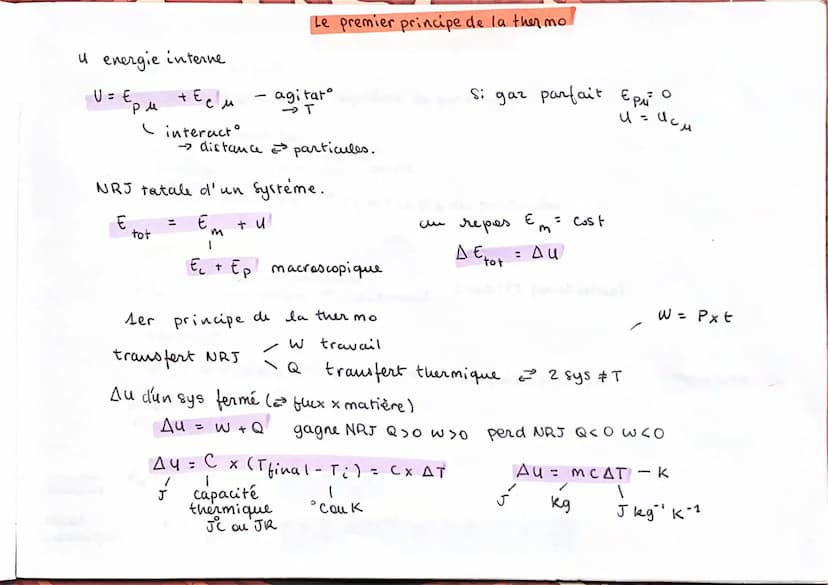 Le premier principe de la thermo
U energie interne
U = Epμ + Ecμ – agitat° → T
interact°
→ distance ⇄ particules.
Si gaz parfait Epμ = 0
U = Ucμ
NRJ totale d'un système.
Etot = Em + U
Ec + Ep macroscopique
au repos Em = cost
ΔEtot = ΔU
1er principe de la thermo
W = P x t
transfert NRJ < W travail
Q transfert thermique ⇄ 2 sys ≠ T
ΔU d'un sys fermé (⇄ flux x matière)
ΔU = W + Q gagne NRJ Q>0 W>0 perd NRJ Q<0 W<0
ΔU = C x (Tfinal – Ti) = C x ΔT
J capacité thermique J°C ou JK
°C ou K
ΔU = mcΔT – K
J kg J kg⁻¹ K⁻¹